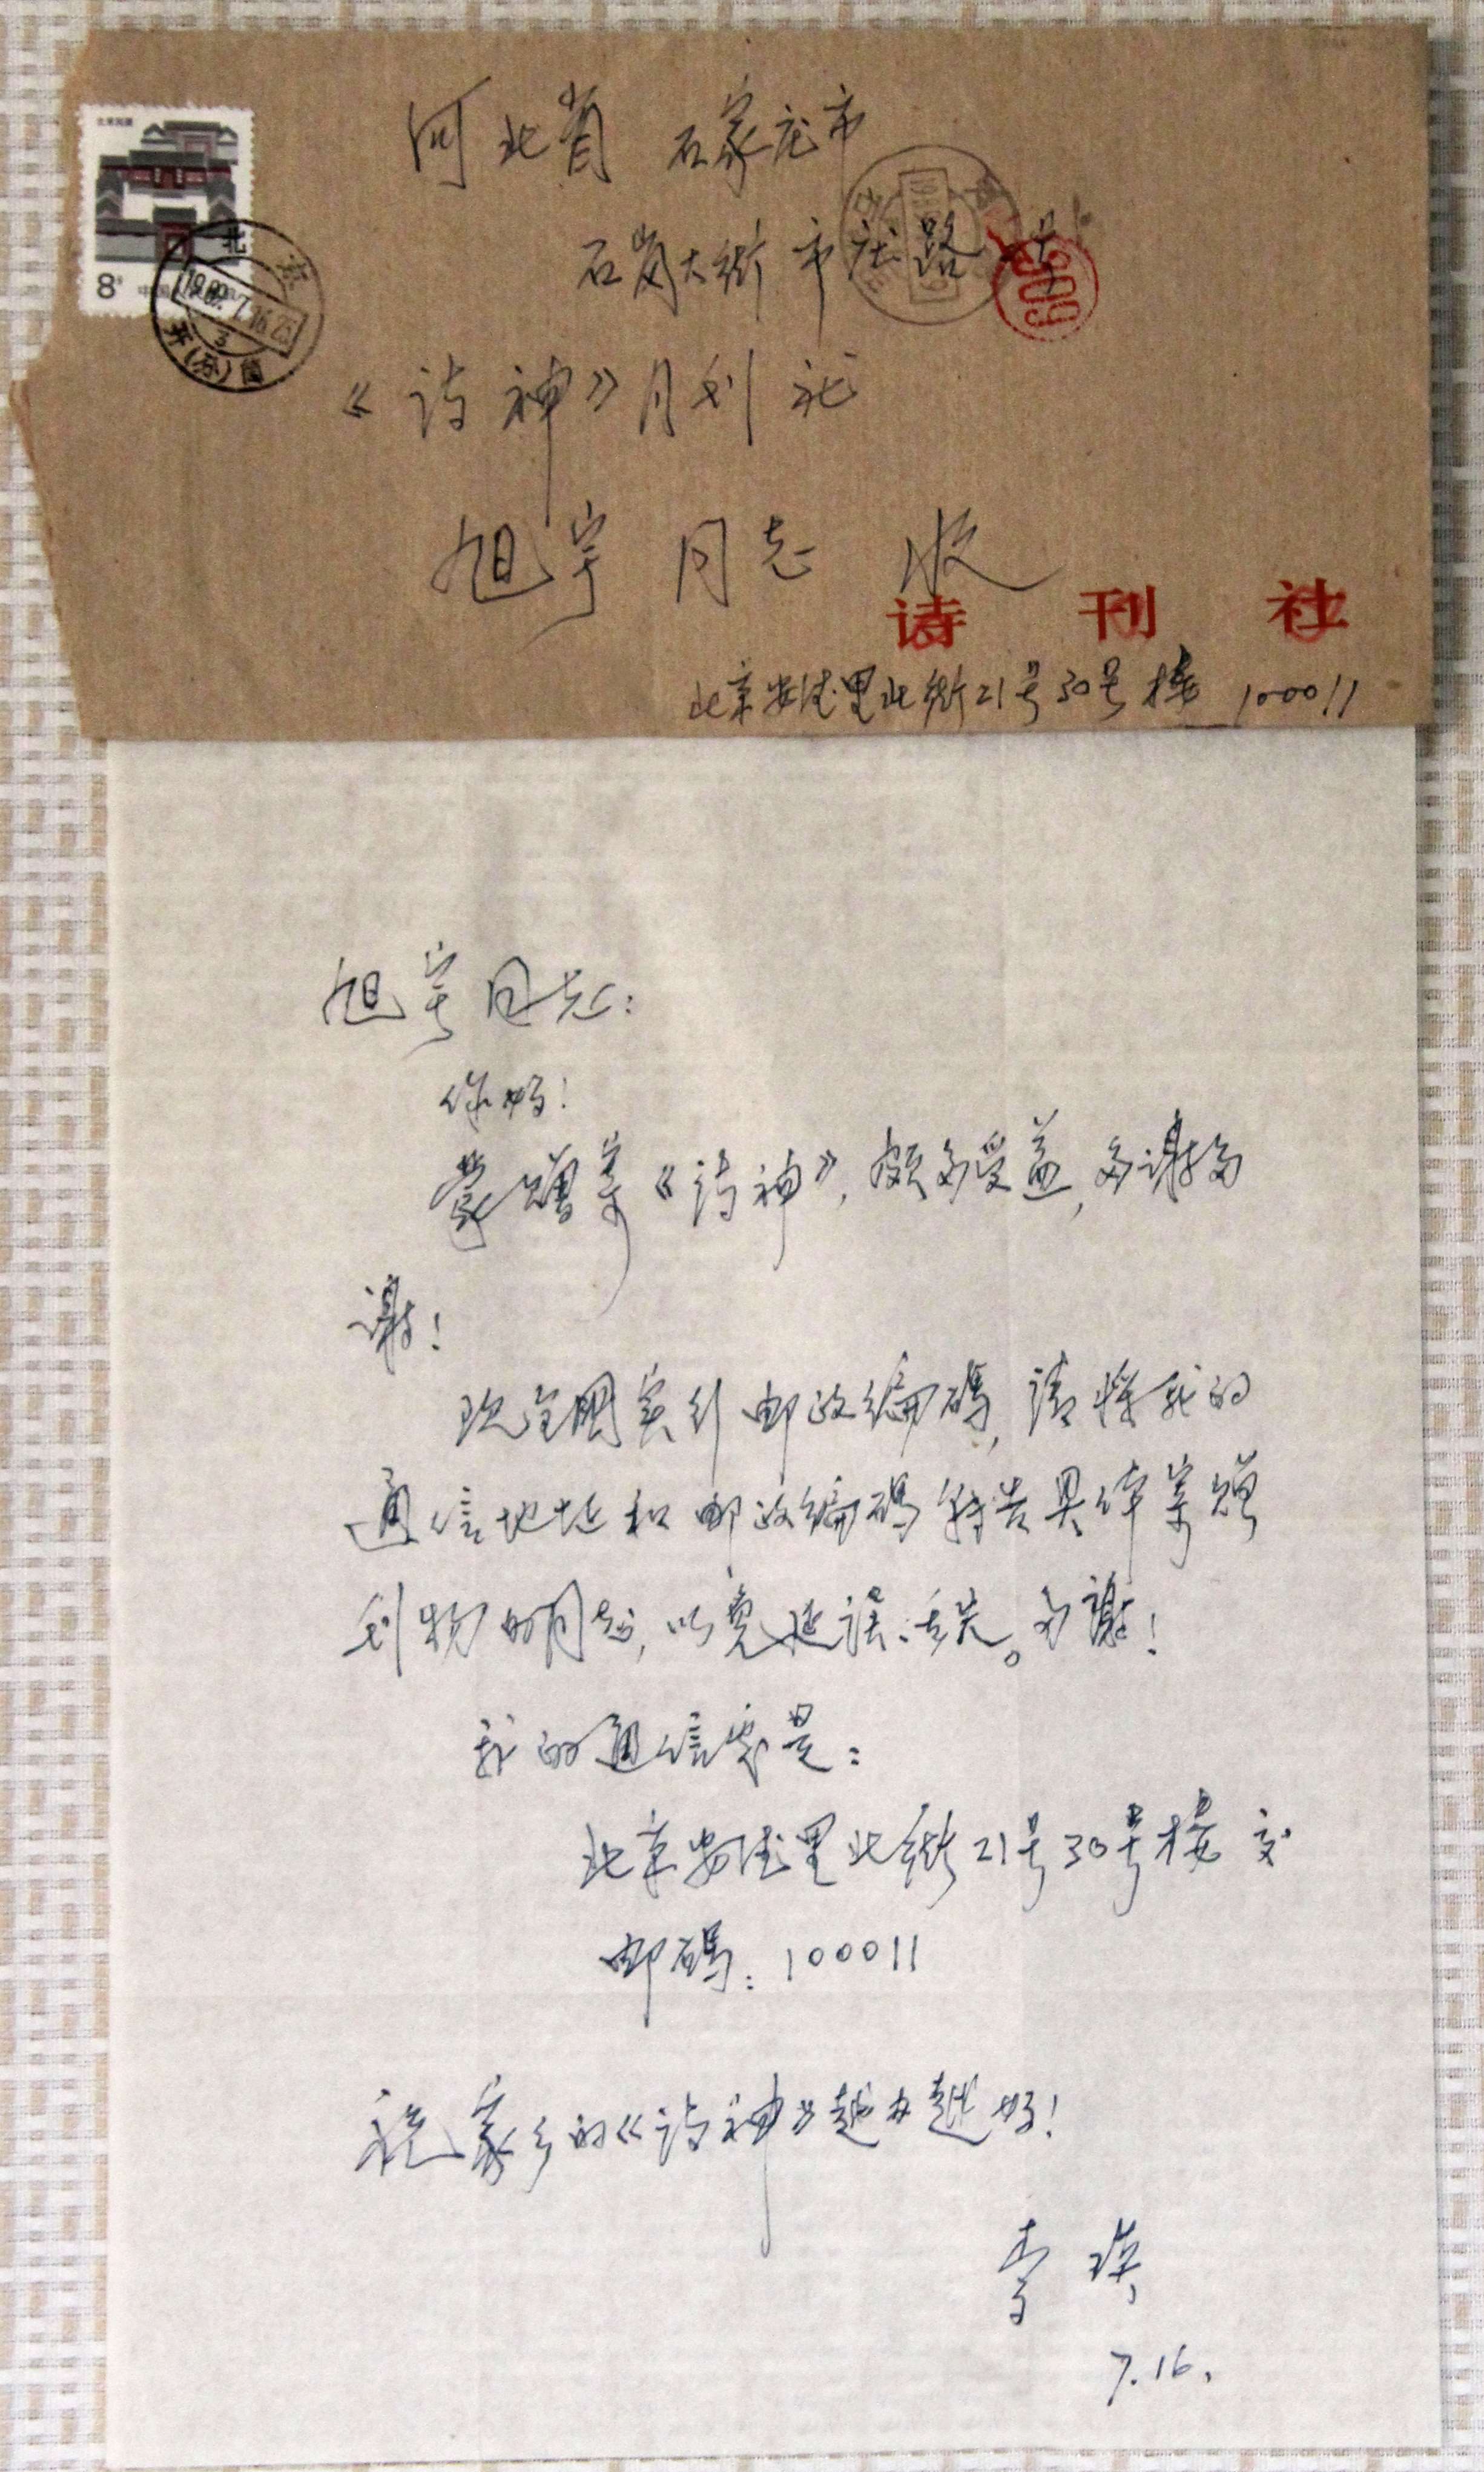 河北省 石家庄市
石岗大街市庄路 号
《诗神》月刊社
旭宇 同志 收
诗刊社
北京安德里北街21号30号楼 100011
8分
北京
609
旭宇同志:
你好!
蒙赠寄《诗神》,颇多受益,多谢多
谢!
现全国实行邮政编码,请将我的
通信地址和邮政编码转告具体寄赠
刊物的同志,以免延误、丢失。多谢!
我的通信处是:
北京安德里北街21号30号楼 交
邮码:100011
祝家乡的《诗神》越办越好!
李瑛
7.16.